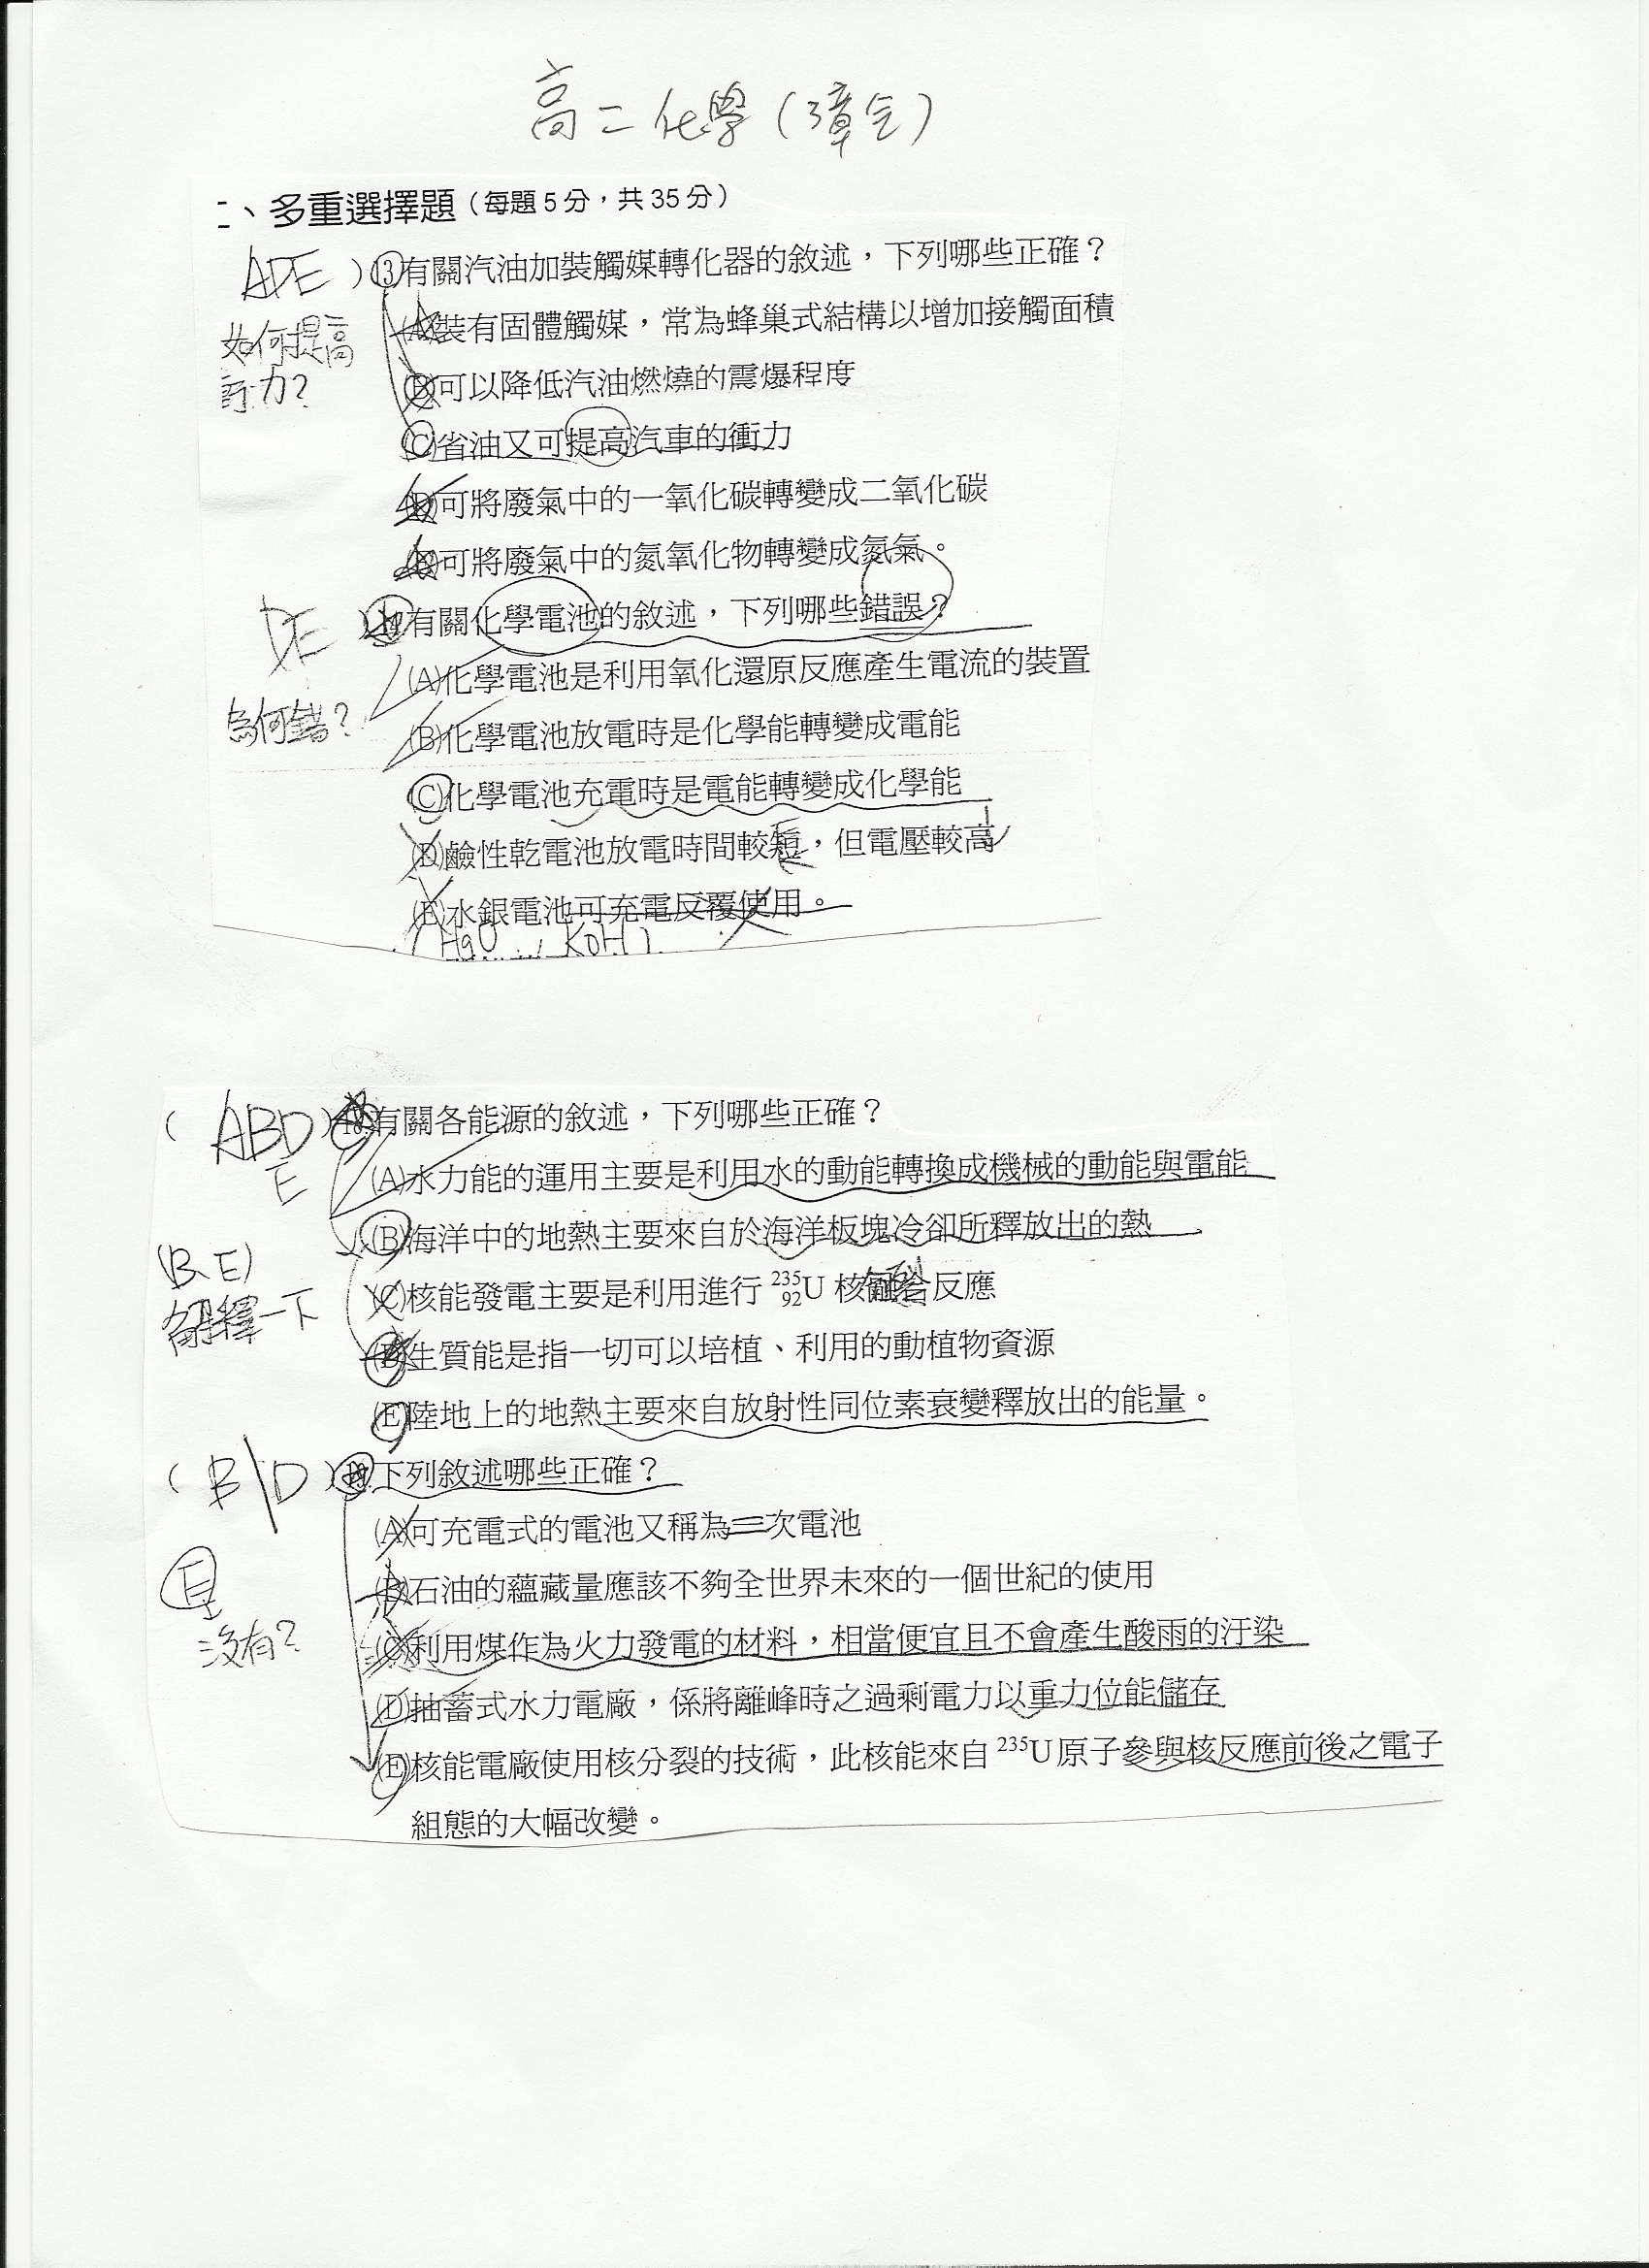 高二化學(彰宏)
二、多重選擇題(每題5分,共35分)
ADE )13.有關汽油加裝觸媒轉化器的敘述,下列哪些正確?
(A)裝有固體觸媒,常為蜂巢式結構以增加接觸面積
如何提高
(B)可以降低汽油燃燒的震爆程度
衝力?
(C)省油又可提高汽車的衝力
(D)可將廢氣中的一氧化碳轉變成二氧化碳
(E)可將廢氣中的氮氧化物轉變成氮氣。
DE )14.有關化學電池的敘述,下列哪些錯誤?
(A)化學電池是利用氧化還原反應產生電流的裝置
為何錯?
(B)化學電池放電時是化學能轉變成電能
(C)化學電池充電時是電能轉變成化學能
(D)鹼性乾電池放電時間較短,但電壓較高
長
(E)水銀電池可充電反覆使用。
(HgO KOH)
( ABD )18.有關各能源的敘述,下列哪些正確?
E
(A)水力能的運用主要是利用水的動能轉換成機械的動能與電能
(B)海洋中的地熱主要來自於海洋板塊冷卻所釋放出的熱
(B、E)
解釋一下
(C)核能發電主要是利用進行 ²³⁵₉₂U 核融合反應
分裂
(D)生質能是指一切可以培植、利用的動植物資源
(E)陸地上的地熱主要來自放射性同位素衰變釋放出的能量。
( B D )19.下列敘述哪些正確?
(A)可充電式的電池又稱為三次電池
(B)石油的蘊藏量應該不夠全世界未來的一個世紀的使用
E
沒有?
(C)利用煤作為火力發電的材料,相當便宜且不會產生酸雨的汙染
(D)抽蓄式水力電廠,係將離峰時之過剩電力以重力位能儲存
(E)核能電廠使用核分裂的技術,此核能來自 ²³⁵U 原子參與核反應前後之電子
組態的大幅改變。